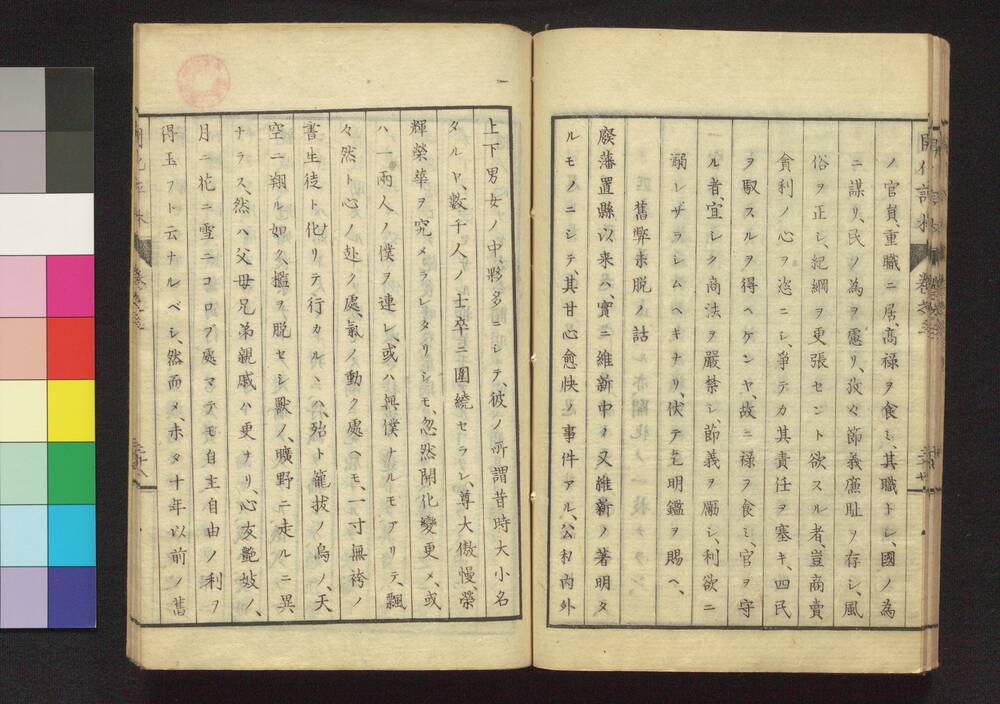 ノ官員、重職ニ居、高禄ヲ食ミ、其職トレ、國ノ為
ニ謀リ、民ノ為ヲ慮リ、孜々節義廉耻ヲ存シ、風
俗ヲ正シ、紀綱ヲ更張セント欲スル者、豈商賣
貪利ノ心ヲ恣ニシ、爭テカ其責任ヲ塞キ、四民
ヲ馭スルヲ得ヘケンヤ、故ニ禄ヲ食ミ、官ヲ守
ル者、宜シク商法ヲ嚴禁シ、節義ヲ勵シ、利欲ニ
溺レザラシムヘキナリ、伏テ乞明鑑ヲ賜ヘ、
舊弊未脱ノ話
廢藩置縣以来ハ、實ニ維新中ノ又維新ノ著明タ
ルモノニシテ、其甘心愈快ノ事件アル、公私内外
上下男女ノ中、夥多ニシテ、彼ノ所謂昔時大小名
タルヤ、數千人ノ士卒ニ圍繞セラレ、尊大傲慢、榮
輝榮華ヲ究メラレタリシモ、忽然開化變更〆、或
ハ一兩人ノ僕ヲ連レ、或ハ無僕ナルモアリテ、飄
々然ト心ノ赴ク處、氣ノ動ク處ヘモ、一寸無袴ノ
書生徒ト化リテ行カルヽハ、殆ト籠拔ノ鳥ノ、天
空ニ翔ル如ク、檻ヲ脱セシ獸ノ、曠野ニ走ルニ異
ナラス、然ハ父母兄弟親戚ハ更ナリ、心友艶妓ノ、
月ニ花ニ雪ニコロブ處マテモ自主自由ノ利ヲ
得玉フト云ナルベシ、然而〆、未タ十年以前ノ舊